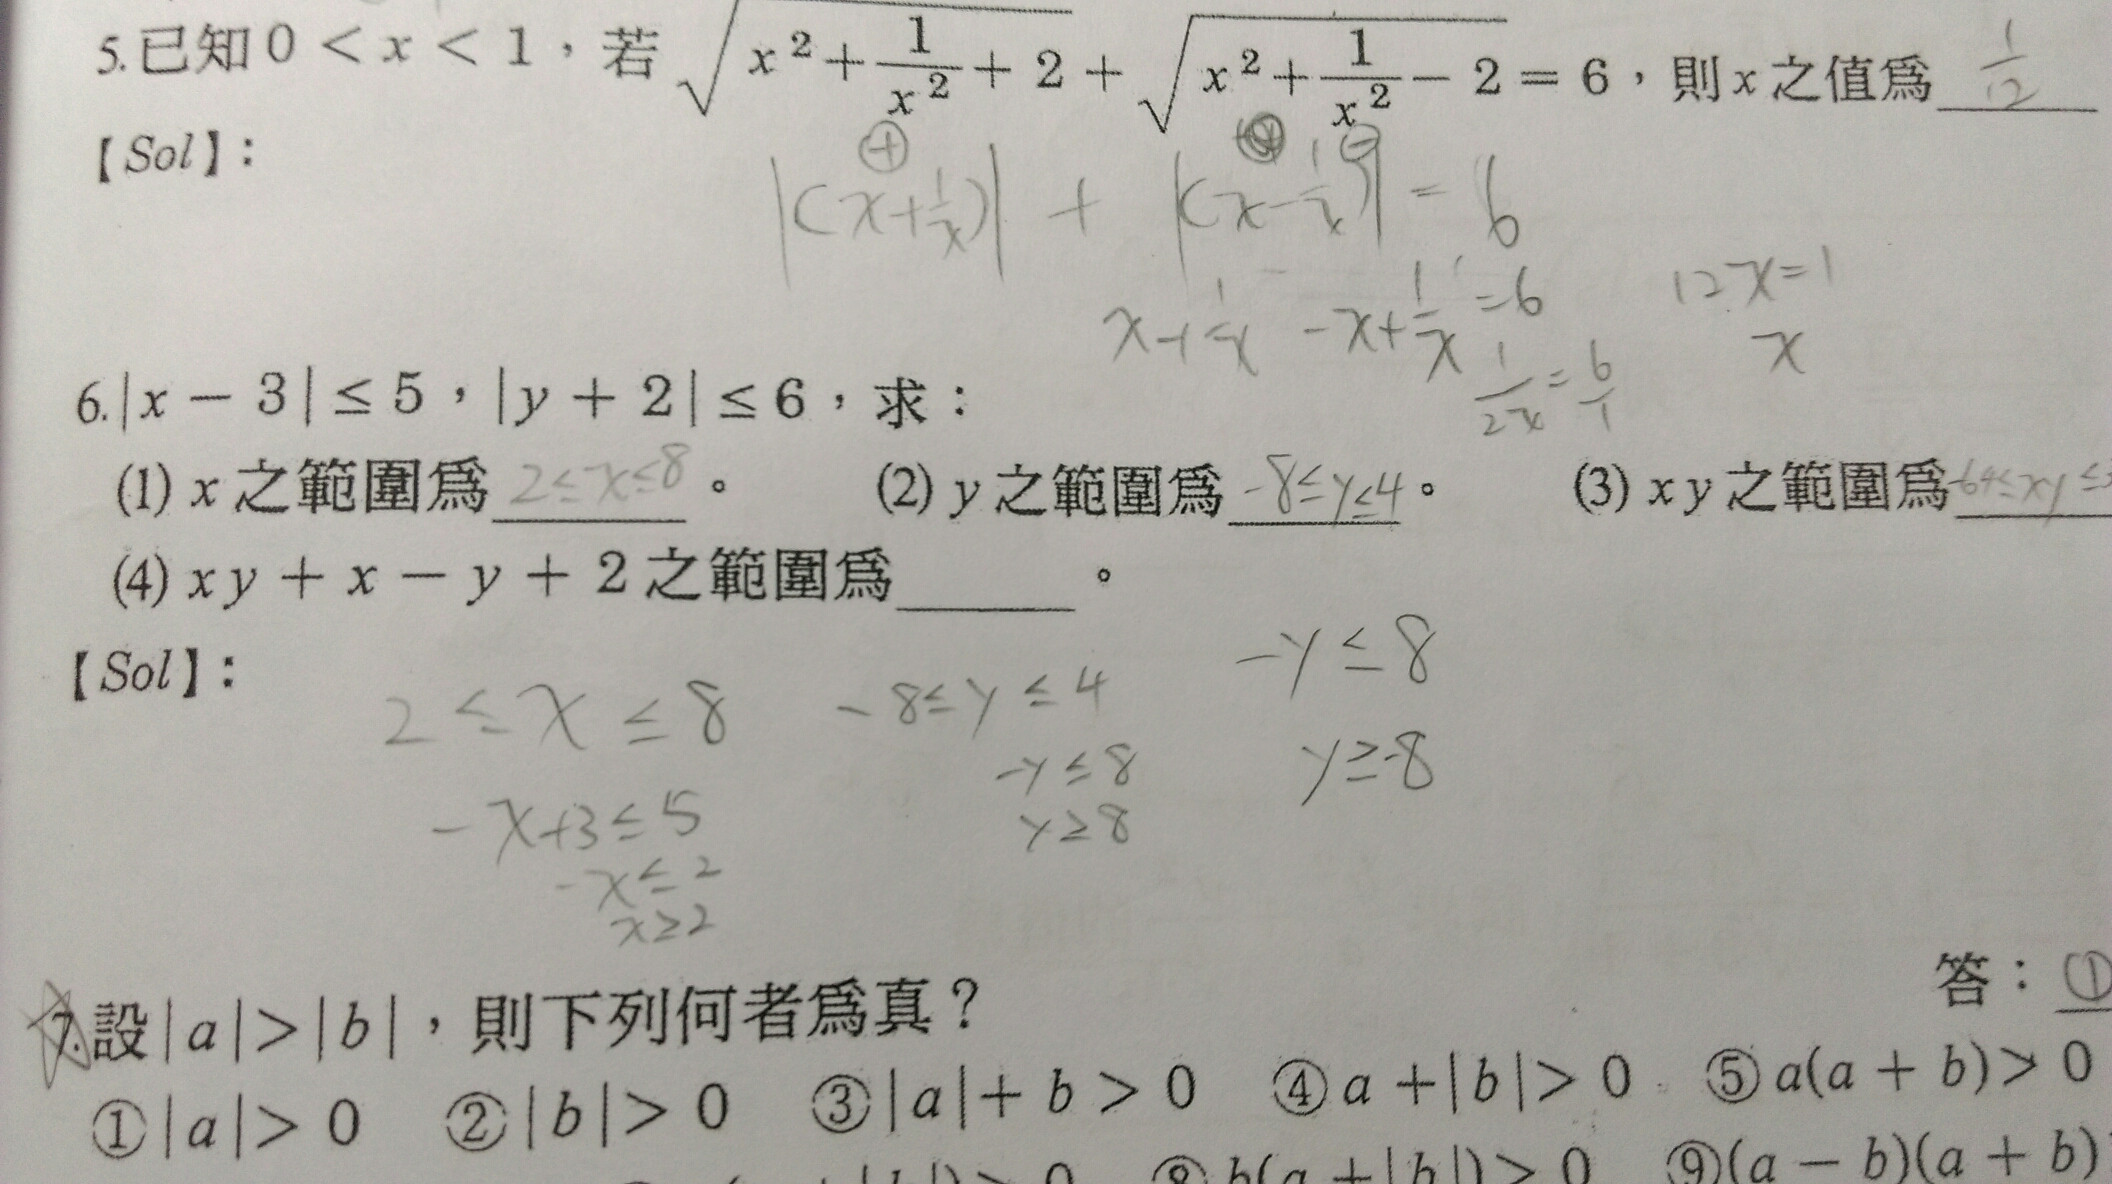 5.已知 0 < x < 1，若 √(x² + 1/x² + 2) + √(x² + 1/x² − 2) = 6，則 x 之值為 1/12
【Sol】：
⊕ ⊖
|(x+1/x)| + |(x-1/x)| = 6
-x+1/x =6
12x=1
x
1/2x = 6/1
6.|x − 3| ≤ 5，|y + 2| ≤ 6，求：
(1) x 之範圍為 2≤x≤8。 (2) y 之範圍為 -8≤y≤4。 (3) xy 之範圍為 -64≤xy≤3
(4) xy + x − y + 2 之範圍為＿＿＿。
【Sol】：
2 ≤ x ≤ 8 -8≤y≤4 -y≤8
-y≤8 y≥-8
-x+3≤5 y≥8
-x≤2
x≥2
答：①
7.設|a|>|b|，則下列何者為真？
①|a|> 0 ②|b|> 0 ③|a|+ b > 0 ④ a +|b|> 0 ⑤ a(a + b)> 0
⑧ b(a +|b|)> 0 ⑨(a − b)(a + b)